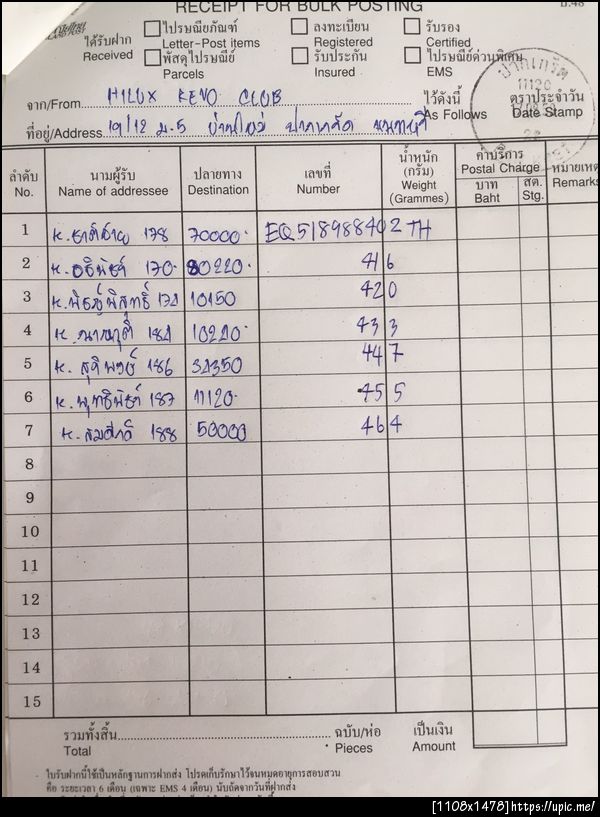 RECEIPT FOR BULK POSTING
ได้รับฝาก
Received
ไปรษณียภัณฑ์
Letter-Post items
พัสดุไปรษณีย์
Parcels
ลงทะเบียน
Registered
รับประกัน
Insured
รับรอง
Certified
ไปรษณีย์ด่วนพิเศษ
EMS
จาก/From HILUX REVO CLUB
ไว้ดังนี้
As Follows
ตราประจำวัน
Date Stamp
ปากเกร็ด
11120
ที่อยู่/Address 19/12 ม.5 บ้านใหม่ ปากเกร็ด นนทบุรี
ลำดับ No. นามผู้รับ Name of addressee ปลายทาง Destination เลขที่ Number น้ำหนัก (กรัม) Weight (Grammes) ค่าบริการ Postal Charge บาท Baht สต. Stg. หมายเหตุ Remarks
1 K. 178 70000 EQ518988402TH
2 K. 170 416
3 K. พิชญ์พิสุทธิ์ 10150 420
4 K. 184 433
5 K. 186 447
6 K. พุทธินันท์ 187 11120 455
7 K. สมศักดิ์ 188 50000 464
8
9
10
11
12
13
14
15
รวมทั้งสิ้น ฉบับ/ห่อ เป็นเงิน
Total Pieces Amount
ใบรับฝากนี้ใช้เป็นหลักฐานการฝากส่ง โปรดเก็บรักษาไว้จนหมดอายุการสอบสวน
คือ ระยะเวลา 6 เดือน (เฉพาะ EMS 4 เดือน) นับถัดจากวันที่ฝากส่ง
[1108x1478]https://upic.me/